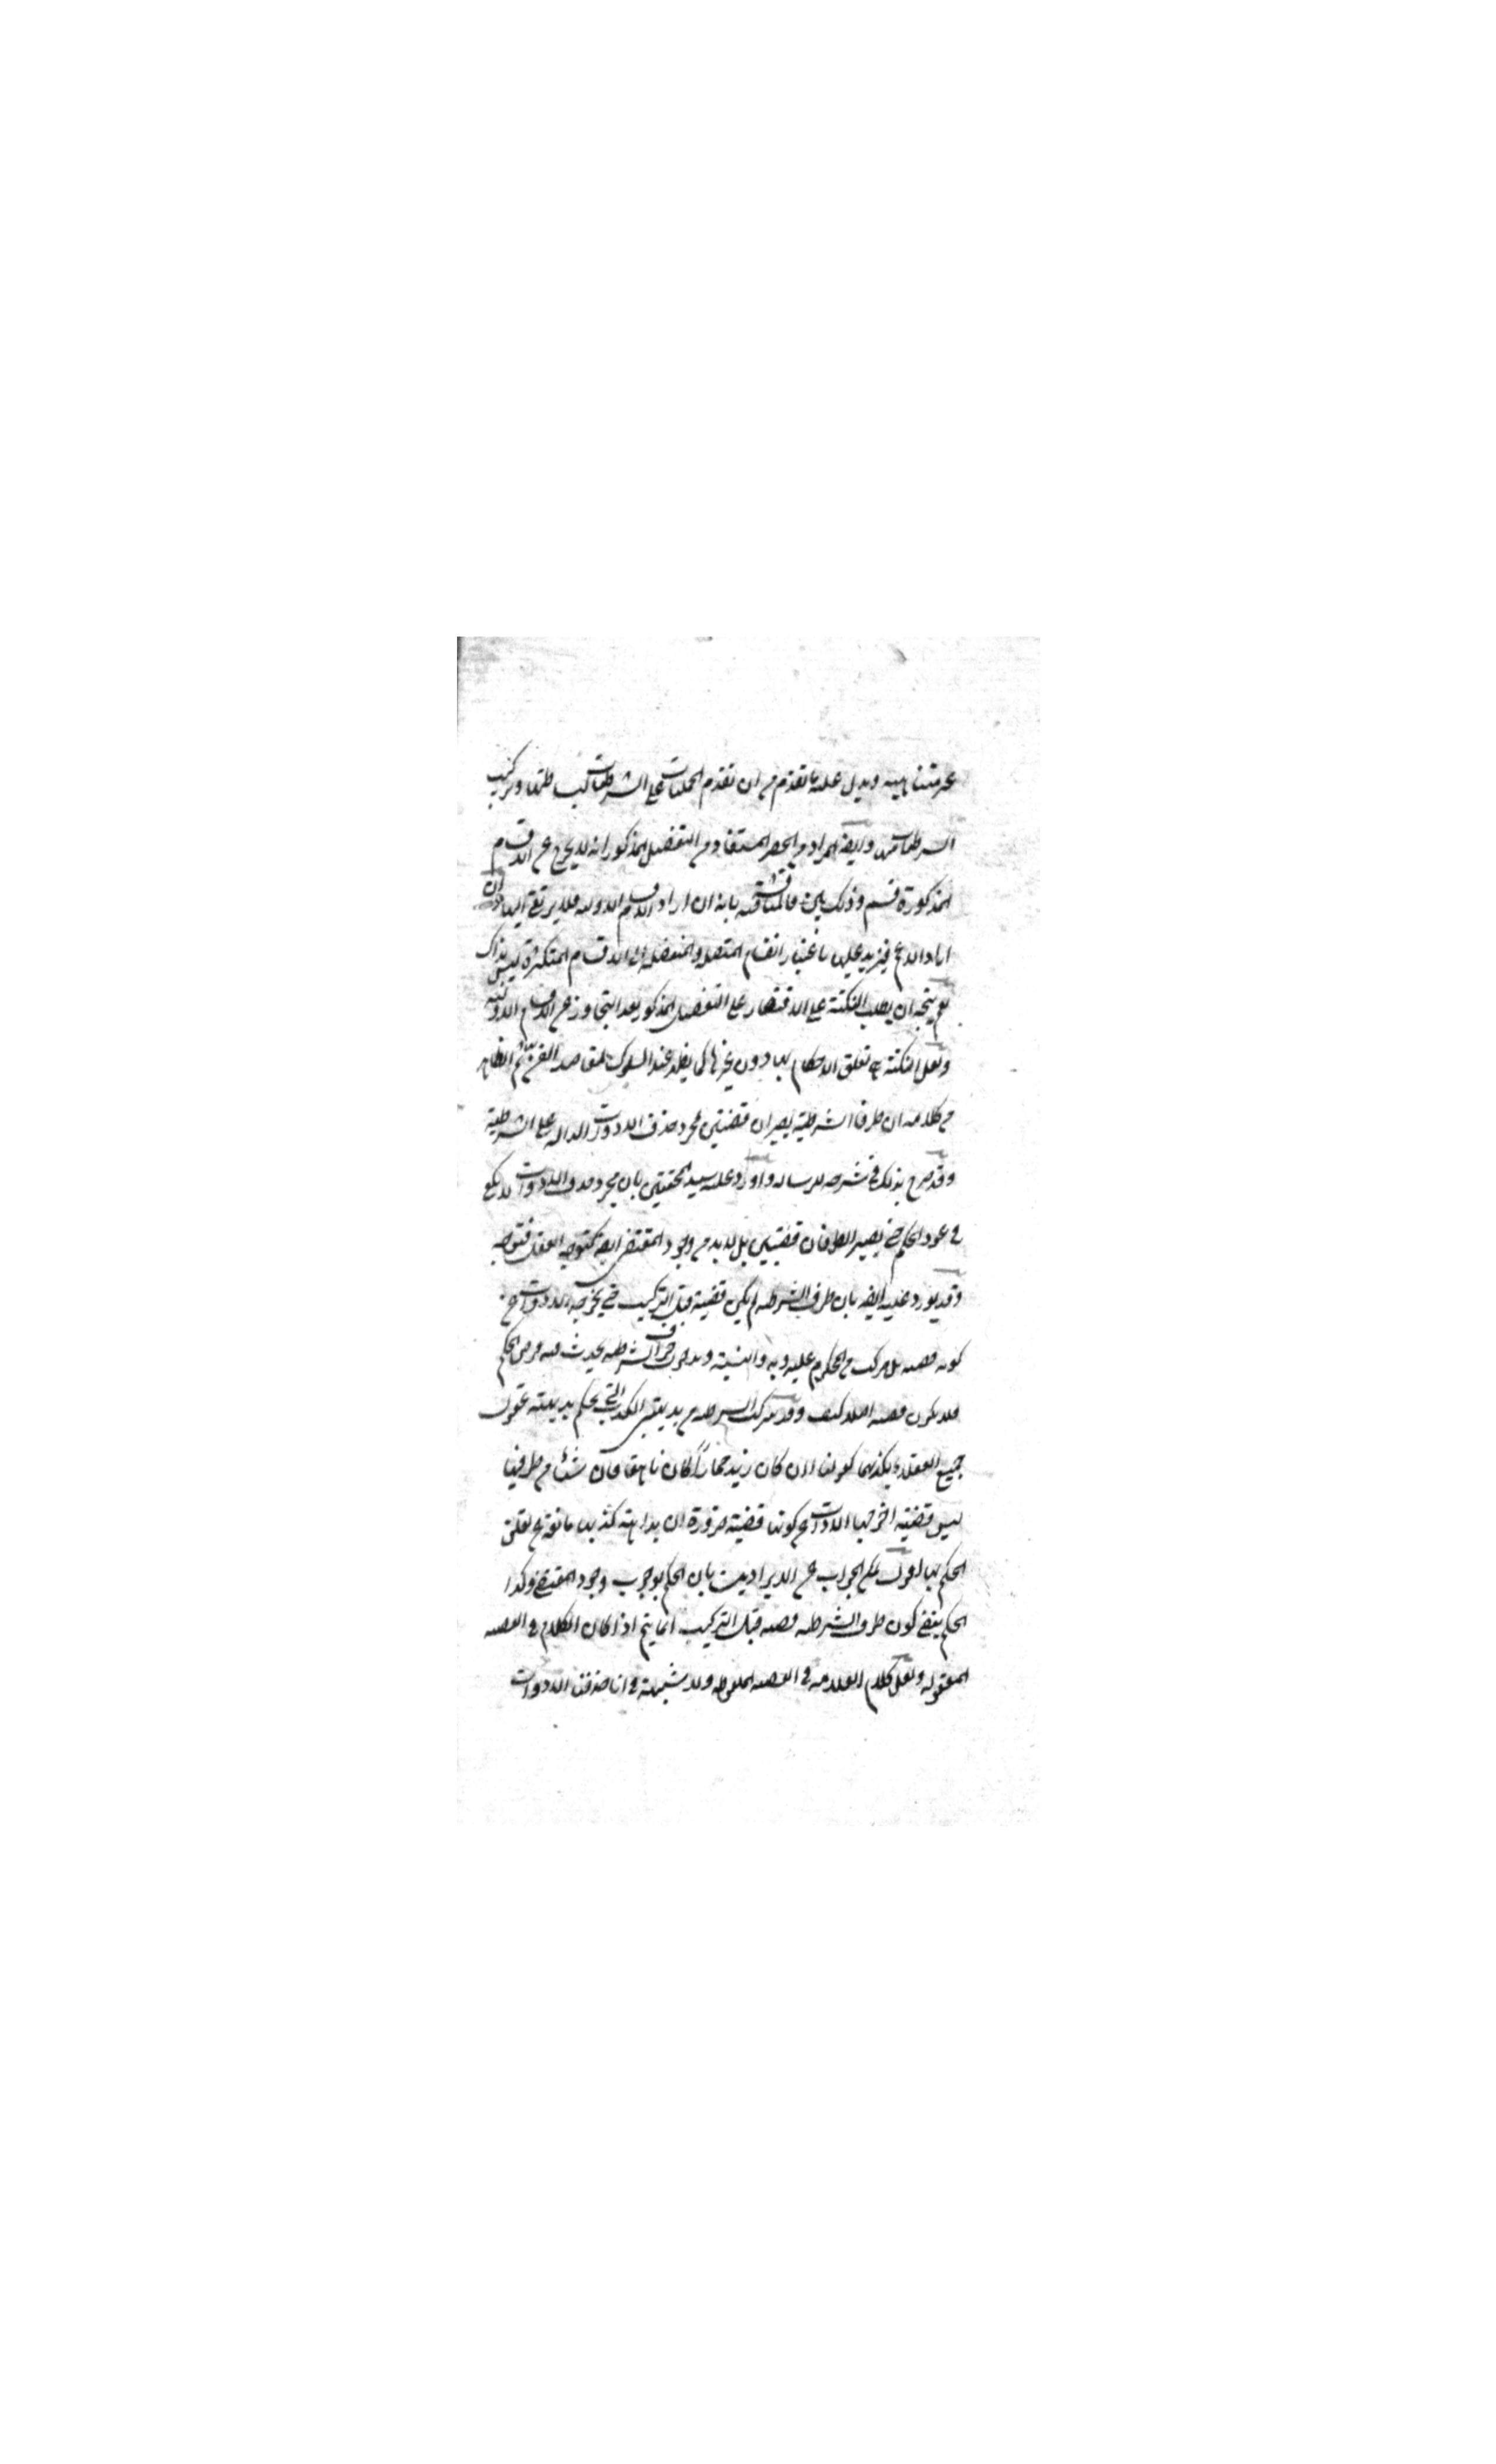 غير متناهية ويدل عليه ما تقدم من ان تقدم الحمليات على الشرطيات لبساطتها وتركيب
الشرطيات منها وايضا المراد من الحصر المستفاد من التفصيل المذكور انه لا يخرج عن الاقسام
المذكورة قسم وذلك بين فالمناقشة بانه ان اراد الاقسام الاولية فلا يرتقى اليها وان
اراد الاعم فيزيد عليها باعتبار انقسام المتصلة والمنفصلة الى الاقسام المتكثرة ليس بذاك
نعم يتجه ان يطلب النكتة على الاقتصار على التفصيل المذكور بعد التجاوز عن الاقسام الاولية
ولعل النكتة هي تعلق الاحكام بها دون غيرها كما يظهر عند السلوك لمقاصد الفن ثم الظاهر
من كلامه ان طرفا الشرطية يصيران قضيتين بمجرد حذف الادوات الدالة على الشرطية
وقد صرح بذلك في شرحه للرسالة واورد عليه سيد المحققين بان مجرد حذف الادوات لا يكفي
في عود الحكم حتى يصير الطرفان قضيتين بل لا بد من وجود المقتضى ايضا كتوجه العقل فتوجه
وقد يورد عليه ايضا بان طرف الشرطية لم يكن قضية قبل التركيب حتى يخرجه الادوات عن
كونه قضية بل مركب من المحكوم عليه وبه والنسبة وبدون حرف الشرطية يحدث فيه فرض الحكم
فلا يكون قضية اصلا كيف وقد يتركب الشرطية من بديهيتي الكذب التي يحكم بديهة عقول
جميع العقلاء بكذبهما كقولنا ان كان زيد حمارا كان ناهقا فان شيئا من طرفيها
ليس قضية اخرجها الادوات عن كونها قضية ضرورة ان بداهة كذبها مانعة عن تعلق
الحكم بها اقول يمكن الجواب عن الايرادين بان الحكم بوجوب وجود المقتضى وكذا
الحكم بنفي كون طرف الشرطية قضية قبل التركيب انما يتم اذا كان الكلام في القضية
المعقولة ولعل كلام العلامة في القضية الملفوظة ولا شبهة في انا اذا حذفنا الادوات